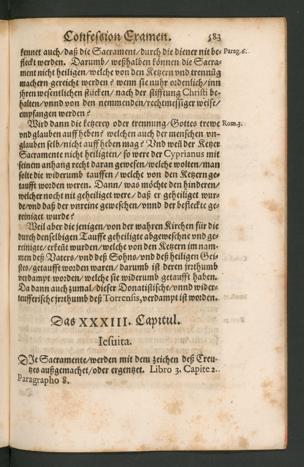 Confession Examen. 583
kennet auch/ daß die Sacrament/ durch die diener nit be- Parag.6.
fleckt werden. Darumb/ weßhalben können die Sacra-
ment nicht heiligen/ welche von den Ketzern vnd trennůg
machern gereicht werden? wenn sie nuhr ordenlich/ inn
ihren wesenlichen stücken/ nach der stifftung Christi be-
halten/ vnnd von den nemmenden/ rechtmessiger weise/
empfangen werden?
Wird dann die ketzerey oder trennung/ Gottes trewe Rom.3.
vnd glauben auff heben? welchen auch der menschen vn-
glauben selb/ nicht auff heben mag? Vnd weil der Ketzer
Sacramente nicht heiligten/ so were der Cyprianus mit
seinem anhang recht daran gewesen/ welche wolten/ man
solte die widerumb tauffen/ welche von den Ketzern ge-
taufft worden weren. Dann/ was möchte den hinderen/
welcher noch nit geheiliget were/ daß er geheiliget wur-
de/ vnd daß der vnreine gewäschen/ vnnd der befleckte ge-
reiniget wurde?
Weil aber die jenigen/ von der wahren Kirchen für die
durch denselbigen Taufft geheiligte abgewäschne vnd ge-
reinigte/ erkäñt wurden/ welche von den Ketzern im nam-
men deß Vaters/ vnd deß Sohns/ vnd deß heiligen Gei-
stes/ getaufft worden waren/ darumb ist deren irrthumb
verdampt worden/ welche sie widerumb getaufft haben.
Da dann auch zumal/ dieser Donatistische/ vnnd wider-
teufferische jrrthumb deß Torrensis, verdampt ist worden.
Das XXXIII. Capitul.
Iesuita.
DIe Sacramente/ werden mit dem zeichen deß Creu-
tzes außgemachet/ oder ergentzet. Libro 3. Capite 2.
Paragrapho 8.